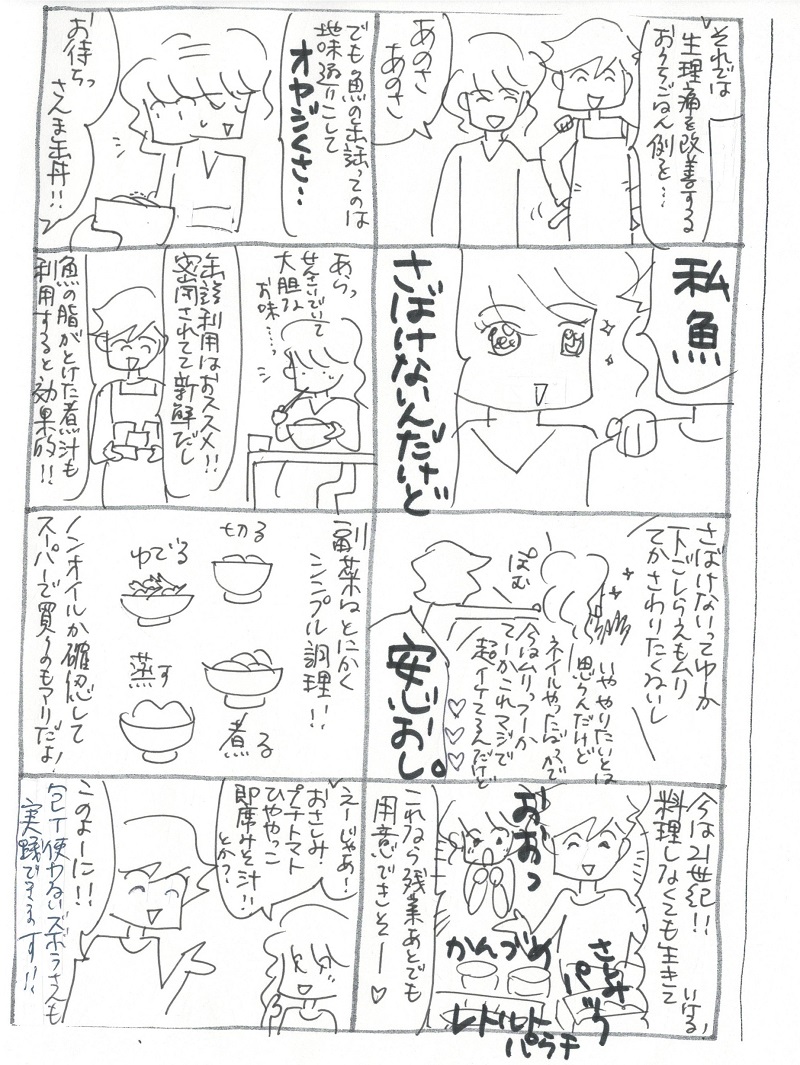 それでは
生理痛を改善する
おうちごはん例を…
あのさ
あのさ
私魚
さばけないんだけど
さばけないってゆーか
下ごしらえもムリ
てかさわりたくないし
いややりたいとは
思うんだけど
ネイルやったばっかで
今はムリっつーか
てーかこれマジで
超イケてるんだけど
ぽむ
安心おし。
今は21世紀!!
料理しなくても生きて
いける!
おおっ
さしみ
パック
かんづめ
レトルト
パウチ
これなら残業あとでも
用意できそー♡
でも魚の缶詰ってのは
地味なりこして
オヤジくさ…
お待ちっ
さんま缶丼!!
あらっ
せんさいでいて
大胆な
お味……っ
缶詰利用はおススメ!!
密閉されてて新鮮だし
魚の脂がとけた煮汁も
利用すると効果的!!
副菜はとにかく
シンプル調理!!
切る
ゆでる
蒸す
煮る
ノンオイルか確認して
スーパーで買うのもアリだよ!
えーじゃあ!
おさしみ
プチトマト
ひややっこ
即席みそ汁!!
とかっ?
このよーに!!
包丁使わないズボラさんも
実践できます!!